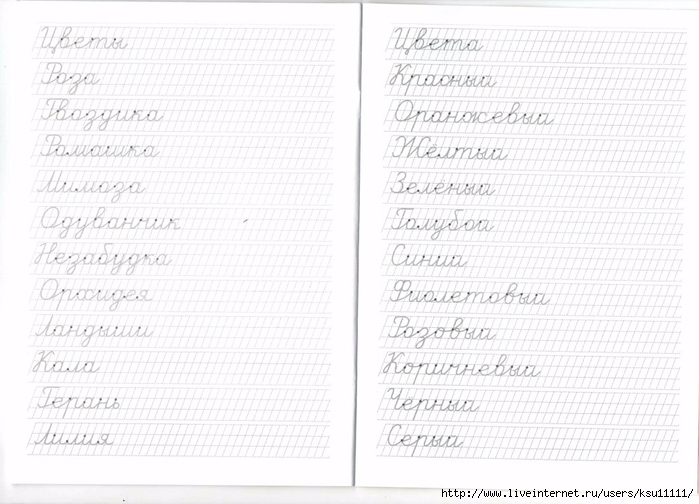 Цветы
Роза
Гвоздика
Ромашка
Мимоза
Одуванчик
Незабудка
Орхидея
Ландыши
Кала
Герань
Лилия
Цвета
Красный
Оранжевый
Жёлтый
Зелёный
Голубой
Синий
Фиолетовый
Розовый
Коричневый
Чёрный
Серый
http://www.liveinternet.ru/users/ksu11111/